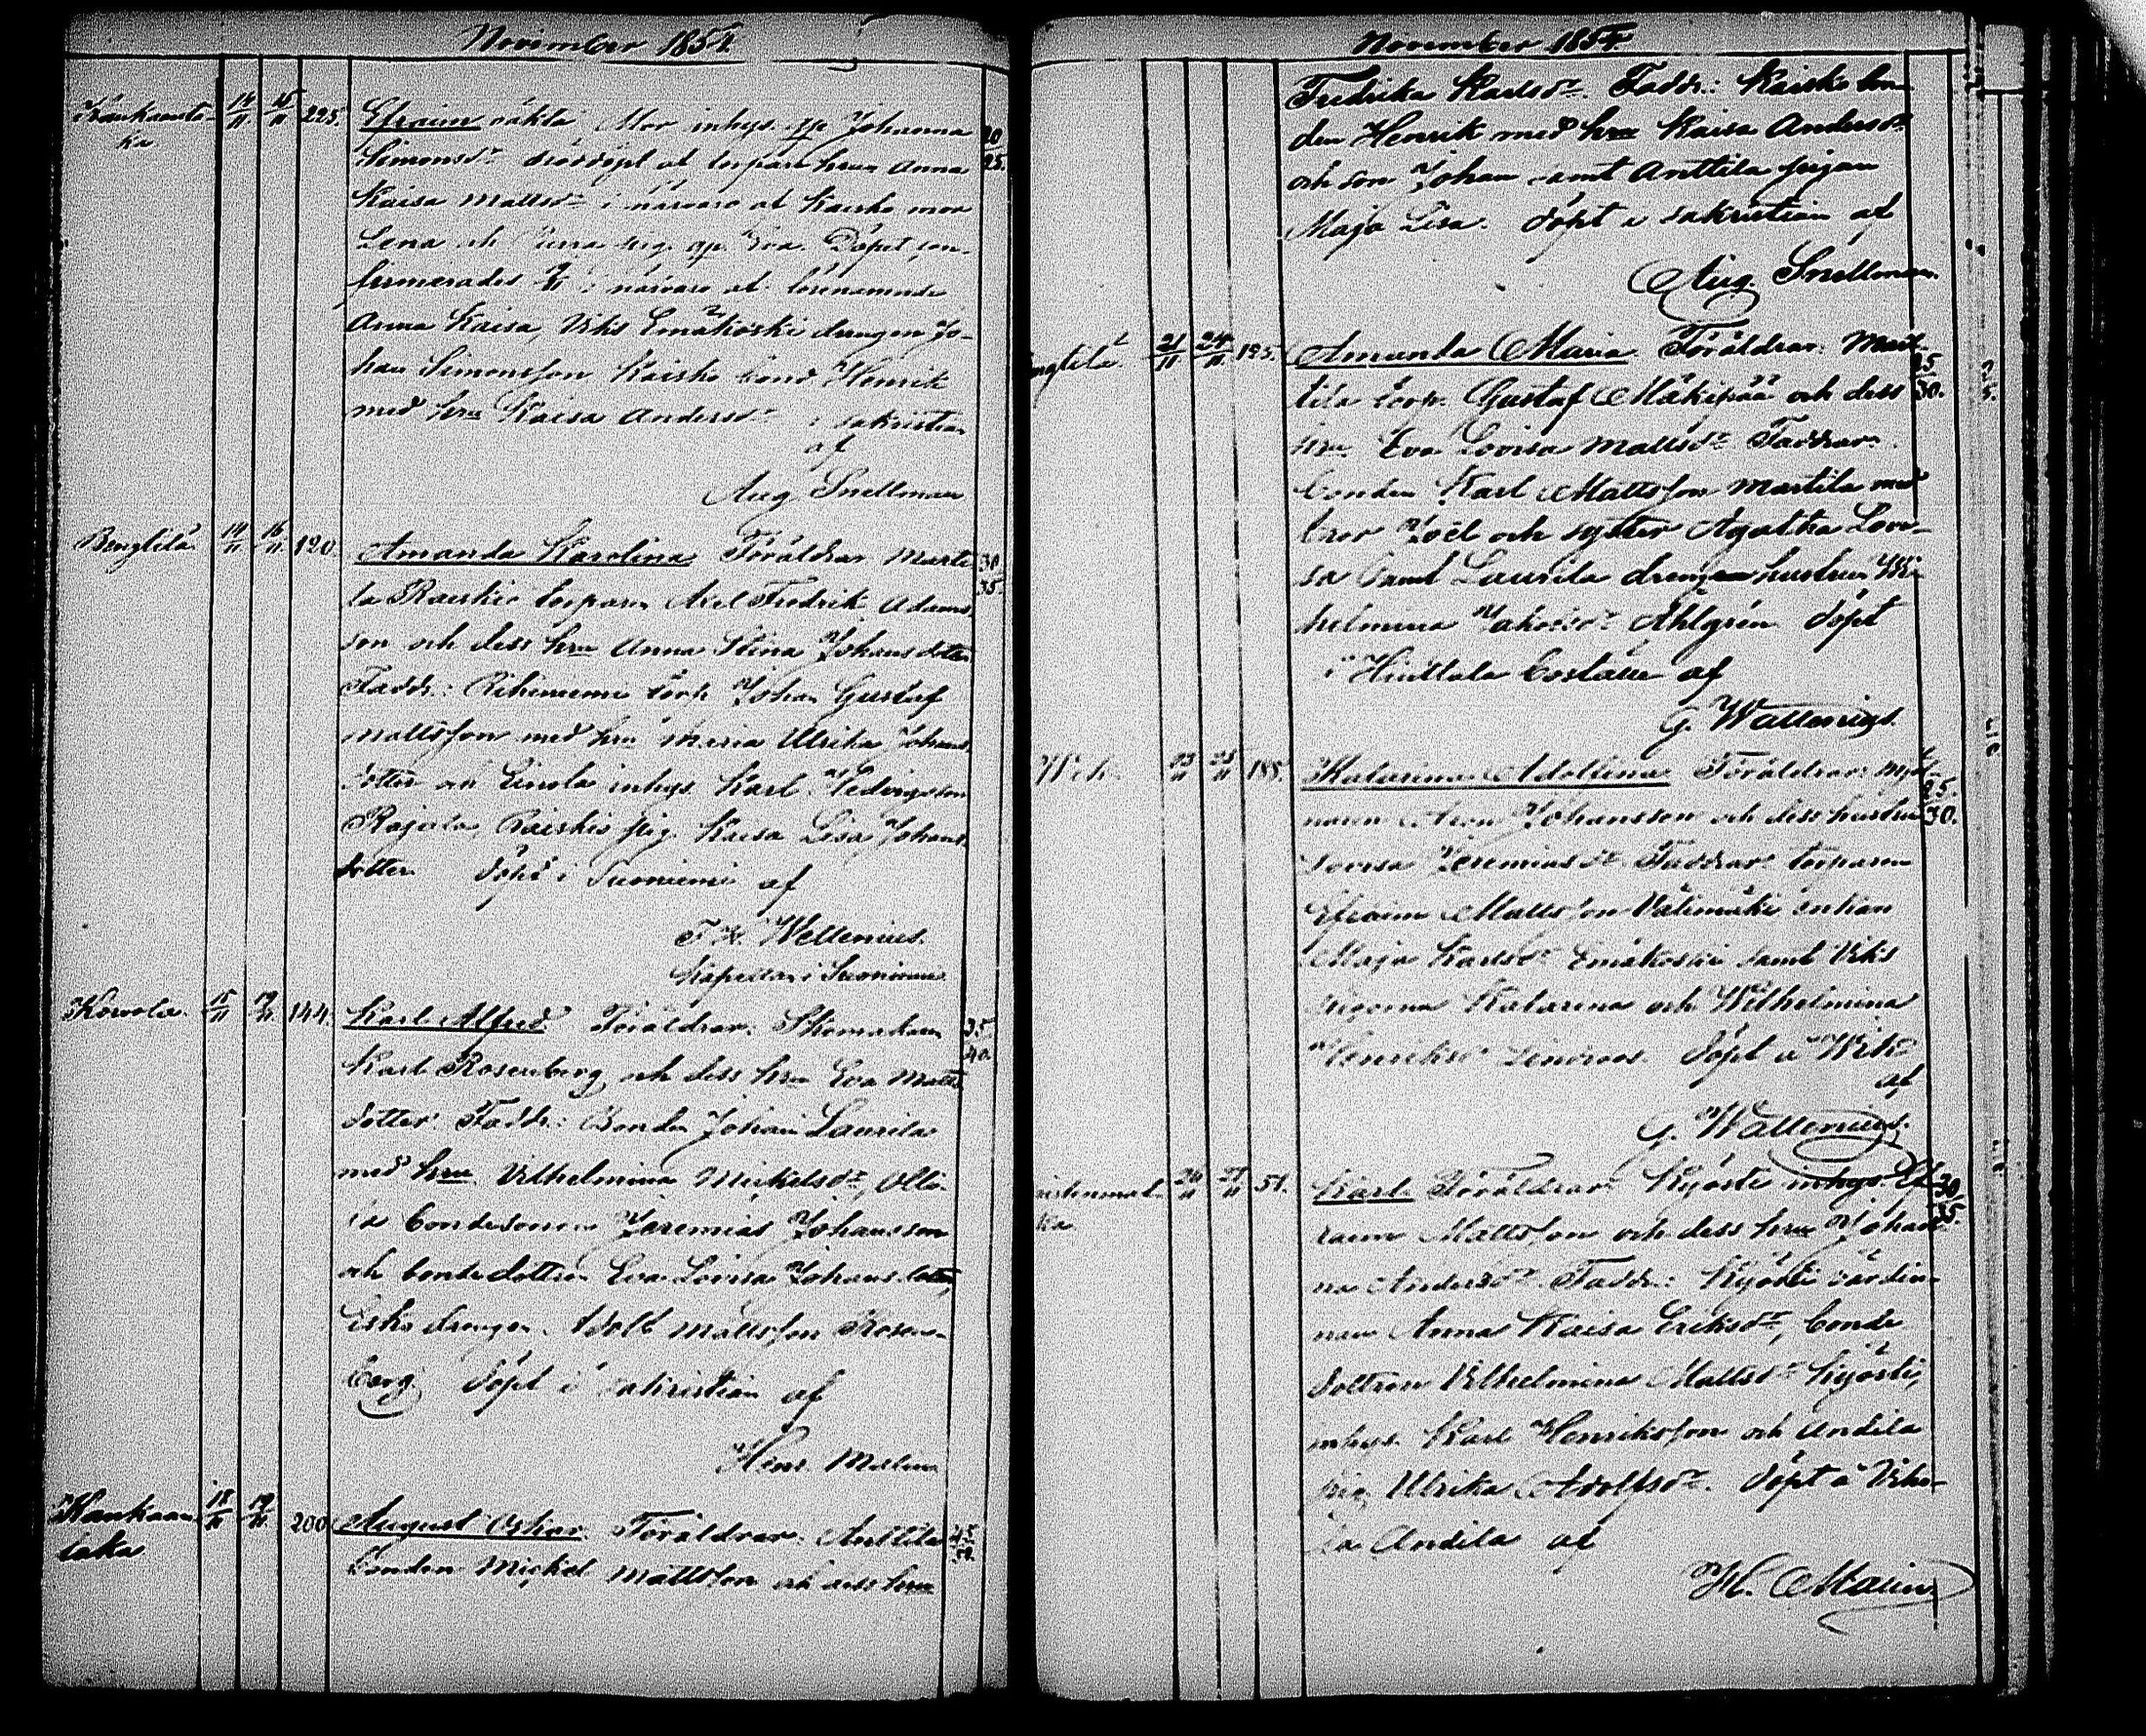 November 1854.
Kankaanta-
ka
14/11 15/11 225.
Efraim oäkta Mor inhys. qp Johanna 20/25.
Simonsdr nöddöpt af torpare hrun Anna
Kaisa Mattsdr i närvaro af Kaisko mor
Lena och pig. qp. Eva. Döpet con-
firmerades i närvaro af förenämnde
Anna Kaisa, Viks Emäkoski drängen Jo-
han Simonsson Kaisko bond Henrik
med hru Kaisa Andersdr i sakristian
af
Aug Snellman
Bengtilä 14/11 16/11 120.
Amanda Karolina Föräldrar Marti- 30/35.
la Raiskio torparn Axel Fredrik Adams-
son och dess hru Anna Stina Johansdotter
Faddr: torp Johan Gustaf
Mattsson med hru Maria Ulrika Johans-
dotter inhys Karl
Rajala, Raiskio pig. Kaisa Lisa Johans-
dotter. Döpt i Suoniemi af
F. H. Wellenius.
Kapellan i Suoniemi
Kowola. 15/11 19/11 144.
Karl Alfred Föräldrar: Skomakaren 35/40
Karl Rosenberg och dess hru Eva Matts-
dotter Faddr: Bonden Johan Laurila
med hru Vilhelmina Mickelsdr, Olli-
la bondesonen Jeremias Johansson
och bondedottren Eva Lovisa Johansdotter,
Esko drängen Adolf Mattsson Rosen-
berg Döpt i sakristian af
Henr. Malin
Kankaan-
taka
18/11 19/11 200.
August Oskar Föräldrar: Anttila 45/50.
bonden Mickel Mattsson och dess hru
November 1854.
Fredrika Karlsdr. Faddr: Kaisko bon-
den Henrik med hru Kaisa Andersdr
och son Johan samt Anttila pigan
Maja Lisa. Döpt i sakristian af
Aug. Snellman.
21/11 24/11 125.
Amanda Maria Föräldrar: Mart- 25/30.
tila torp. Gustaf Mäkipää och dess
hru Eva Lovisa Mattsdr Faddrar
bonden Karl Mattsson Martila med
bror Joel och syster Agatha Lovi-
sa samt Laurila drängen hustru Wil-
helmina Jakobsdr Ahlgren döpt
i Hiuttala boställe af
G. Wallenius.
Wik. 23/11 25/11 188.
Katarina Adolfina Föräldrar: Myl- 25/30.
naren Aron Johansson och dess hustru
Lovisa Jeremiasdr Faddrar torparen
Efraim Mattsson Välimäki enkan
Maja Karlsdr Emäkoski samt Viks
pigorna Katarina och Wilhelmina
Henriksdr Döpt i Wik
af
G. Wallenius.
26/11 27/11 51.
Karl Föräldrar Kyösti inhys Ef- 30/35.
raim Mattsson och dess hru Johan-
na Andersdr Faddr: Kyösti värdin-
nan Anna Kaisa Eriksdr, bonde
dottren Vilhelmina Mattsdr Kyösti,
inhys. Karl Henriksson och Andila
pig. Ulrika Adolfsdr. Döpt i
Andila af
H. Malin